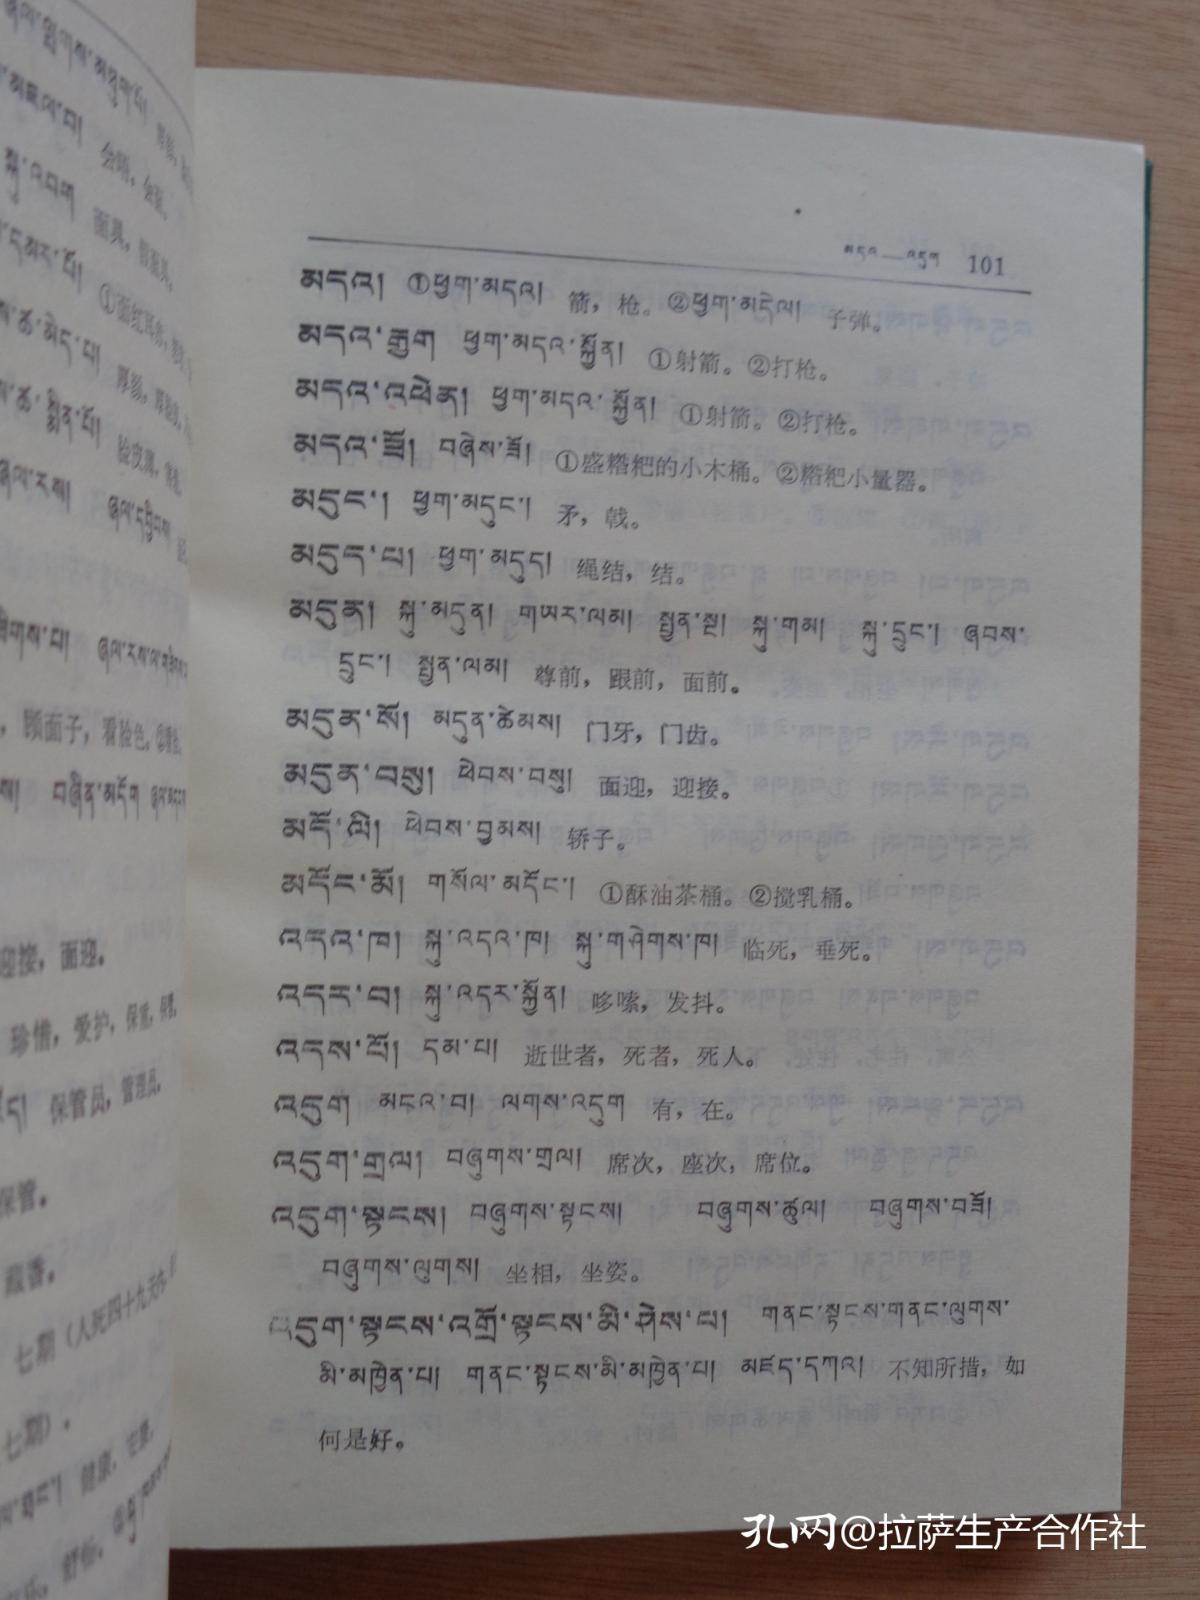 མདའ—འདུག 101
མདའ། ①ཕྱག་མདའ། 箭，枪。②ཕྱག་མདེལ། 子弹。
མདའ་རྒྱག ཕྱག་མདའ་སྐྱོན། ①射箭。②打枪。
མདའ་འཕེན། ཕྱག་མདའ་སྐྱོན། ①射箭。②打枪。
མདའ་ཟོ། བཞེས་ཟོ། ①盛糌粑的小木桶。②糌粑小量器。
མདུང་། ཕྱག་མདུང་། 矛，戟。
མདུད་པ། ཕྱག་མདུད། 绳结，结。
མདུན། སྐུ་མདུན། གཡར་ལམ། སྤྱན་སྔ། སྐུ་གམ། སྐུ་དྲུང་། ཞབས་
དྲུང་། སྤྱན་ལམ། 尊前，跟前，面前。
མདུན་སོ། མདུན་ཚེམས། 门牙，门齿。
མདུན་བསུ། ཕེབས་བསུ། 面迎，迎接。
མདོ་ལི། ཕེབས་བྱམས། 轿子。
མདོང་མོ། གསོལ་མདོང་། ①酥油茶桶。②搅乳桶。
འདའ་ཁ། སྐུ་འདའ་ཁ། སྐུ་གཤེགས་ཁ། 临死，垂死。
འདར་བ། སྐུ་འདར་སྐྱོན། 哆嗦，发抖。
འདས་པོ། དམ་པ། 逝世者，死者，死人。
འདུག མངའ་བ། ལགས་འདུག 有，在。
འདུག་གྲལ། བཞུགས་གྲལ། 席次，座次，席位。
འདུག་སྟངས། བཞུགས་སྟངས། བཞུགས་ཚུལ། བཞུགས་བཟོ།
བཞུགས་ལུགས། 坐相，坐姿。
འདུག་སྟངས་འགྲོ་སྟངས་མི་ཤེས་པ། གནང་སྟངས་གནང་ལུགས་
མི་མཁྱེན་པ། གནང་སྟངས་མི་མཁྱེན་པ། མཛད་དཀའ། 不知所措，如
何是好。
面具，
①面红耳赤，
厚颜，
脸皮薄，
，顾面子，看脸色。
迎接，面迎。
珍惜，爱护，保管，
保管员，管理员。
保管。
藏香。
七期（人死四十九天内，
七期）.
健康，
孔网@拉萨生产合作社